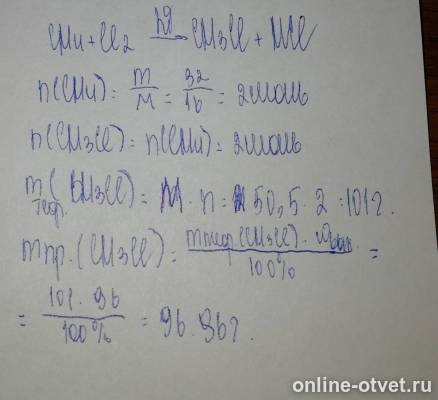 CH4 + Cl2 hν→ CH3Cl + HCl
n(CH4) = m/M = 32/16 = 2моль
n(CH3Cl) = n(CH4) = 2моль
mтеор.(CH3Cl) = M · n = 50,5 · 2 = 101г.
mпр.(CH3Cl) = mтеор(CH3Cl) · ωвых. / 100% =
= 101 · 96 / 100% = 96.96г.
online-otvet.ru